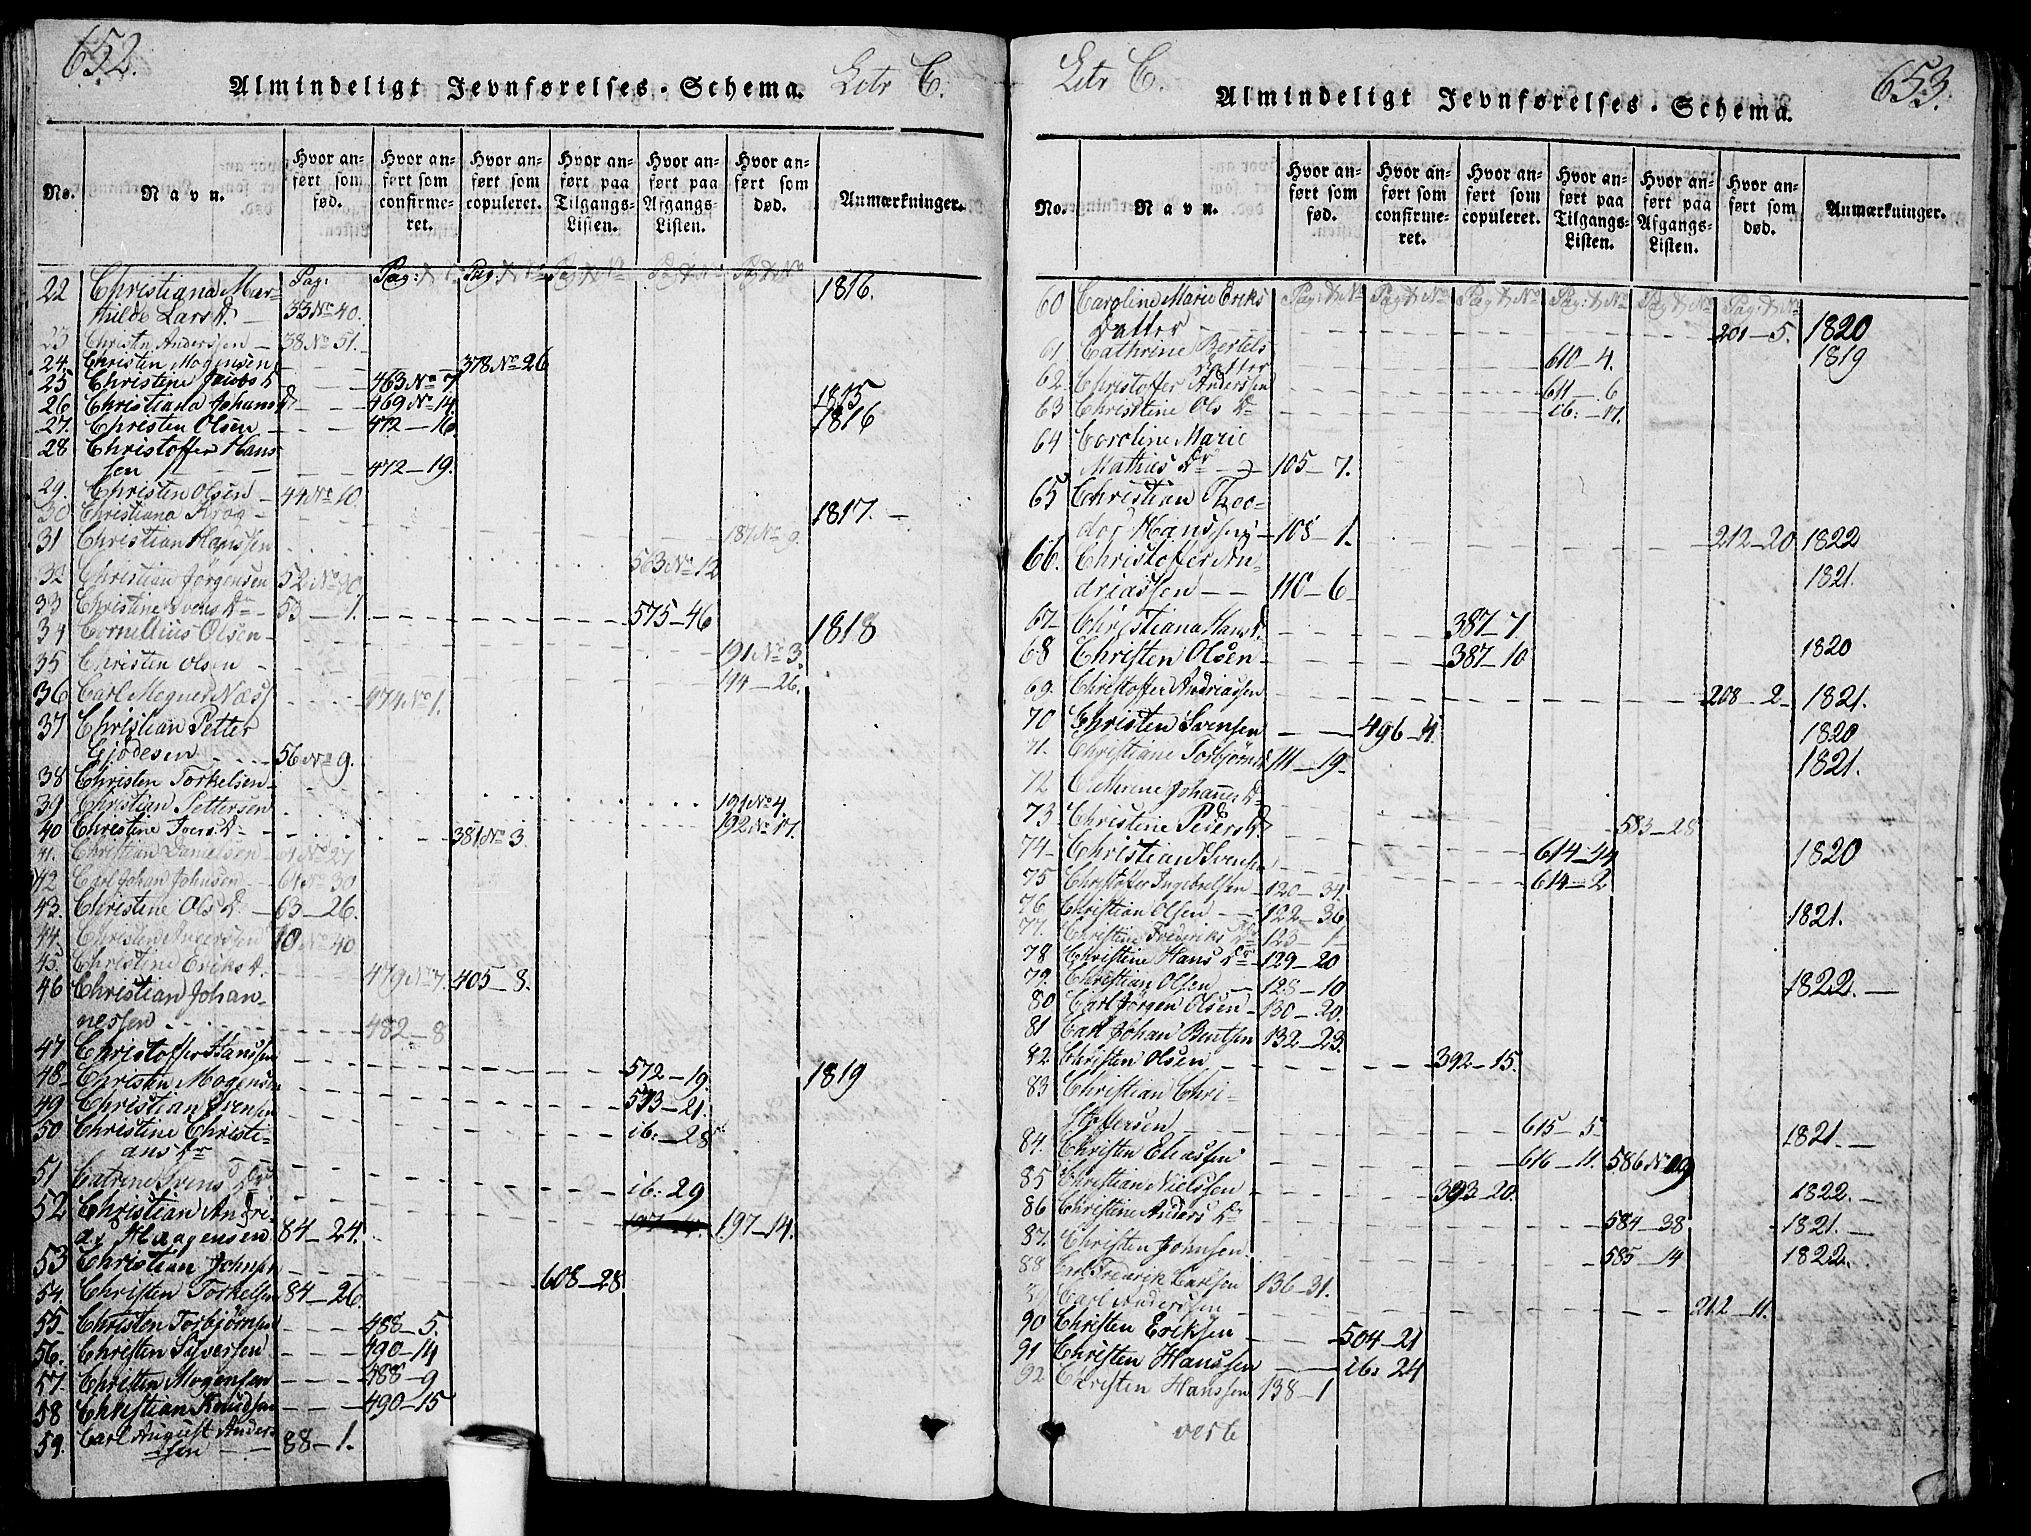 652.
Almindeligt Jevnførelses-Schema. Litr C.
No.
Navn.
Hvor an-
ført som
fød.
Hvor an-
ført som
confirme-
ret.
Hvor an-
ført som
copuleret.
Hvor an-
ført paa
Tilgangs-
Listen.
Hvor an-
ført paa
Afgangs-
Listen.
Hvor an-
ført som
død.
Anmærkninger.
Pag: Pag: & No Pag: & No Pag & No Pag & No Pag & No
22 Christiana Mar- 1816.
hilde Lars D. 33 No 40.
23 Christen Anderssen 38 No 51.
24. Christen Mogensen 378 No 26
25 Christine Jacobs D 463 No 7
26 Christiana Johans D 469 No 14. 1815
27. Christen Olsen 472 - 16. 1816
28 Christoffer Hans-
sen 472 - 19.
29. Christen Olsen 44 No 10.
30 Christiana Krog 187 No 9. 1817.
31 Christian Hanssen 563 No 12
32 Christian Jörgensen 52 No 30
33 Christine Svens Dr 53 - 1. 575 - 46
34 Cornellius Olsen 191 No 3. 1818
35 Christen Olsen 194 - 26.
36 Carl Mogner Næss 474 No 1.
37 Christian Petter
Gjödesen 56 No 9.
38 Christen Torkelsen 191 No 4.
39 Christian Pettersen 192 No 17.
40 Christine Ivers Dr 381 No 3.
41. Christian Danielsen 61 No 27
42 Carl Johan Johnsen 61 No 30
43. Christine Ols D. 63 - 26.
44. Christen Anderssen 70 No 40
45. Christine Eriks D. 479 No 7. 405 - 8.
46 Christian Johan-
nessen 482 - 8
47 Christoffer Hanssen 572 - 19. 1819
48 Christen Mogensen 573 - 21.
49 Christian Svensen ib. - 28
50 Christine Christi-
ans Dr
51 Catrine Svens Dr ib. 29
52 Christian Andre-
as Haagensen 84 - 24. 197 - 14.
53 Christian Johnsen 608 - 28.
54. Christen Torkelsen 84 - 26.
55 Christen Torbjørnsen 488 - 5.
56. Christen Syversen 490 - 14
57. Christen Mogensen 488 - 9
58 Christian Knudsen 490 - 15
59. Carl August Anders-
sen 88 - 1.
Litr C.
Almindeligt Jevnførelses-Schema. 653.
No.
Navn.
Hvor an-
ført som
fød.
Hvor an-
ført som
confirme-
ret.
Hvor an-
ført som
copuleret.
Hvor an-
ført paa
Tilgangs-
Listen.
Hvor an-
ført paa
Afgangs-
Listen.
Hvor an-
ført som
død.
Anmærkninger.
60 Caroline Marie Eriks Pag: & No Pag & No Pag & No Pag: & No Pag & No Pag & No
Datter 201 - 5. 1820
61 Cathrine Bertels
Datter 610 - 4. 1819
62. Christoffer Anderssen 611 - 6
63 Christine Ols Dr ib: - 17.
64 Caroline Marie
Mathies Dr 105 - 7.
65 Christian Theo-
dor Hanssen 108 - 1. 212 - 20 1822
66. Christoffer An-
driassen 110 - 6 1821.
67 Christiana Hans D. 387 - 7.
68 Christen Olsen 387 - 10 1820
69. Christoffer Andriassen 208 - 2 1821.
70 Christen Svensen 496 - 4. 1820
71. Christiane Torbjørns D 111 - 19. 1821.
72 Cathrine Johannes Dr
73. Christine Peders D 583 - 28
74 Christian Svensen 614 - 44 1820
75 Christoffer Ingebretsen 120 - 34. 614 - 2.
76 Christian Olsen 122 - 36 1821.
77. Christine Frederiks Dr 123 - 1
78 Christine Hans Dr 129 - 20
79. Christian Olsen 128 - 10 1822.
80 Carl Jörgen Olsen 130 - 20.
81 Carl Johan Bentsen 132 - 23.
82 Christen Olsen 392 - 15.
83 Christian Chri-
stoffersen 615 - 5 1821.
84. Christen Eliassen 616 - 11. 586 No 19
85 Christian Nielssen 393 - 20. 1822.
86 Christine Anders Dr 584 - 38 1821.
87. Christen Johnsen 585 - 14 1822.
88 Carl Frederik Carlsen 136 - 31.
89 Carl Anderssen 212 - 11.
90 Christen Eriksen 504 - 21
91 Christen Hanssen ib: 24
92 Christen Hanssen 138 - 1
verte